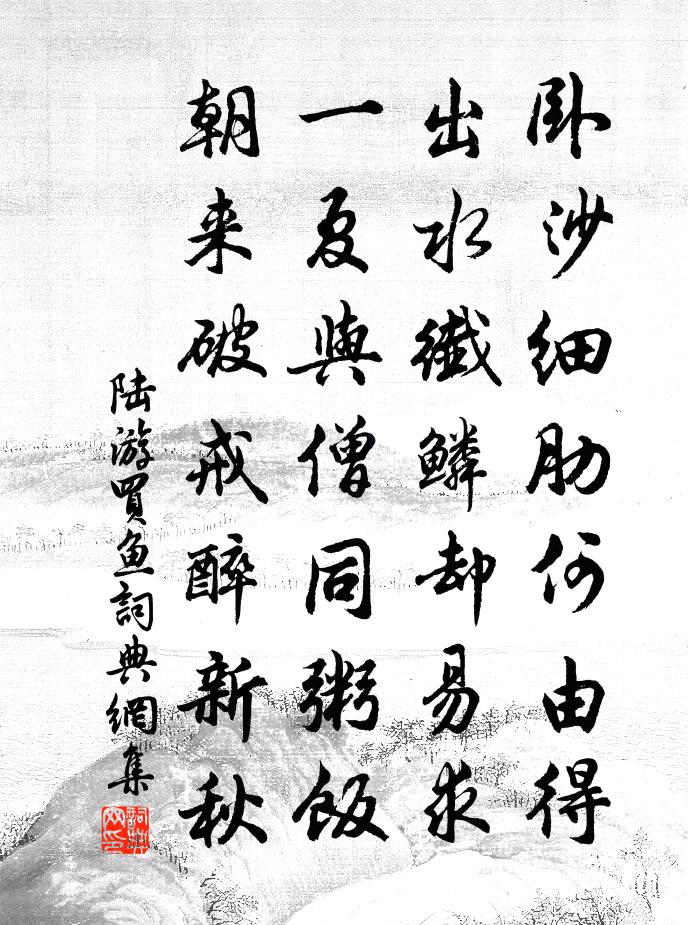 卧沙细肋何由得
出水纖鱗却易求
一夏與僧同粥飯
朝来破戒醉新秋
陆游買鱼詞典網集